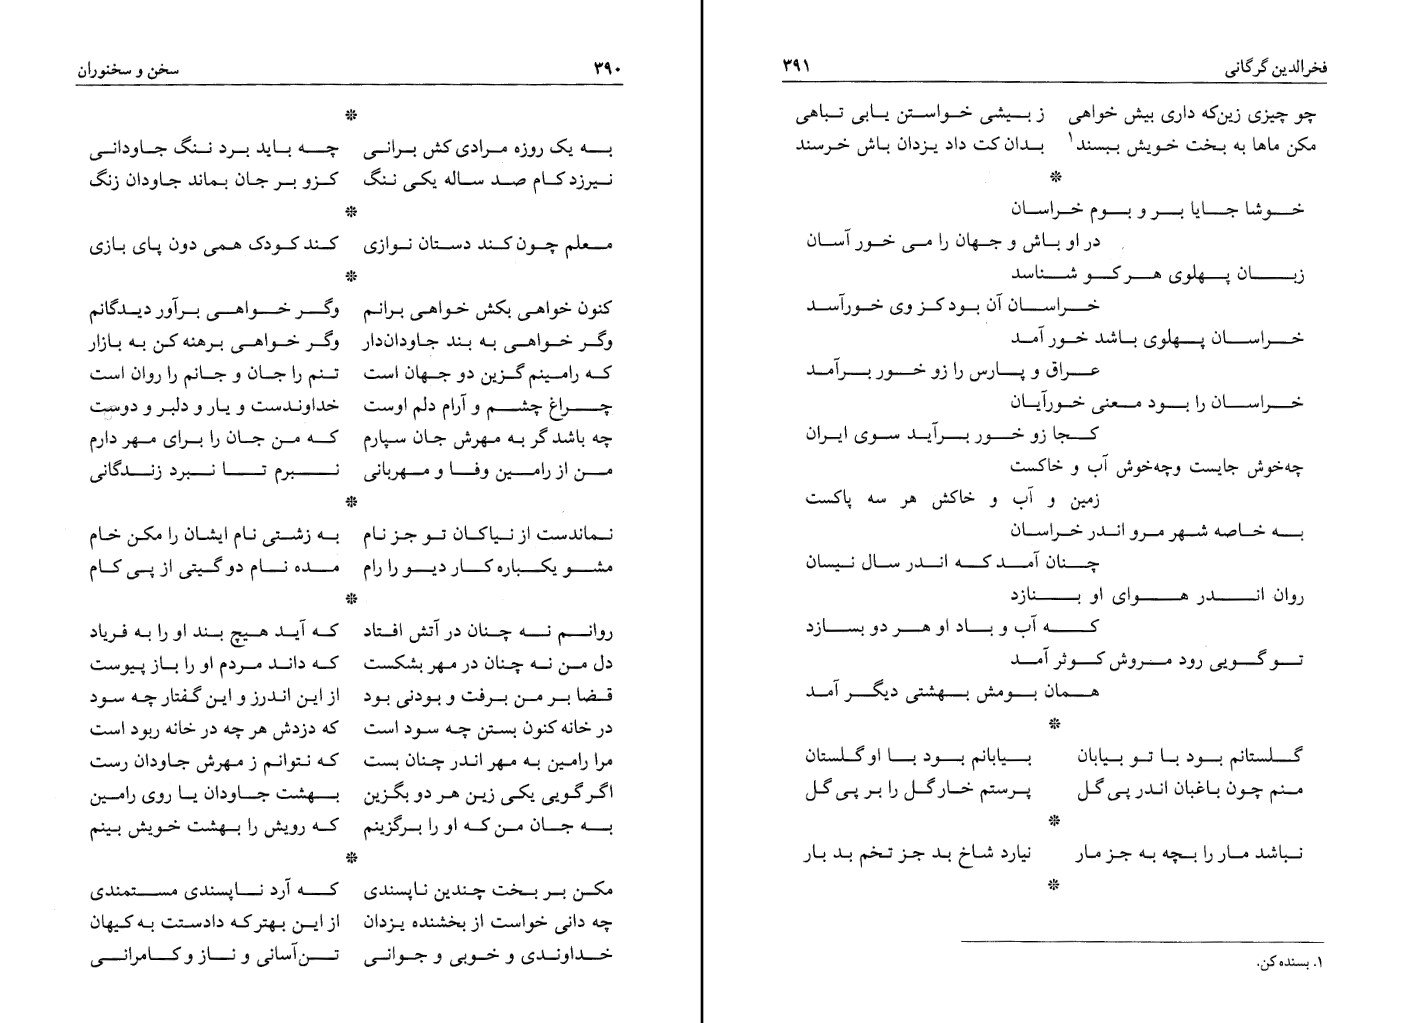 ۳۹۰ سخن و سخنوران
*
به یک روزه مرادی کش برانی چه باید برد ننگ جاودانی
نیرزد کام صد ساله یکی ننگ کزو بر جان بماند جاودان زنگ
*
معلم چون کند دستان نوازی کند کودک همی دون پای بازی
*
کنون خواهی بکش خواهی برانم وگر خواهی برآور دیدگانم
وگر خواهی به بند جاودان‌دار وگر خواهی برهنه کن به بازار
که رامینم گزین دو جهان است تنم را جان و جانم را روان است
چراغ چشم و آرام دلم اوست خداوندست و یار و دلبر و دوست
چه باشد گر به مهرش جان سپارم که من جان را برای مهر دارم
من از رامین وفا و مهربانی نبرم تا نبرد زندگانی
*
نماندست از نیاکان تو جز نام به زشتی نام ایشان را مکن خام
مشو یکباره کار دیو را رام مده نام دو گیتی از پی کام
*
روانم نه چنان در آتش افتاد که آید هیچ بند او را به فریاد
دل من نه چنان در مهر بشکست که داند مردم او را باز پیوست
قضا بر من برفت و بودنی بود از این اندرز و این گفتار چه سود
در خانه کنون بستن چه سود است که دزدش هر چه در خانه ربود است
مرا رامین به مهر اندر چنان بست که نتوانم ز مهرش جاودان رست
اگر گویی یکی زین هر دو بگزین بهشت جاودان یا روی رامین
به جان من که او را برگزینم که رویش را بهشت خویش بینم
*
مکن بر بخت چندین ناپسندی که آرد ناپسندی مستمندی
چه دانی خواست از بخشنده یزدان از این بهتر که دادستت به کیهان
خداوندی و خوبی و جوانی تن‌آسانی و ناز و کامرانی
فخرالدین گرگانی ۳۹۱
چو چیزی زین‌که داری بیش خواهی ز بیشی خواستن یابی تباهی
مکن ماها به بخت خویش ببسند۱ بدان کت داد یزدان باش خرسند
*
خوشا جایا بر و بوم خراسان
در او باش و جهان را می خور آسان
زبان پهلوی هر کو شناسد
خراسان آن بود کز وی خورآسد
خراسان پهلوی باشد خور آمد
عراق و پارس را زو خور برآمد
خراسان را بود معنی خورآیان
کجا زو خور برآید سوی ایران
چه‌خوش جایست وچه‌خوش آب و خاکست
زمین و آب و خاکش هر سه پاکست
به خاصه شهر مرو اندر خراسان
چنان آمد که اندر سال نیسان
روان اندر هوای او بنازد
که آب و باد او هر دو بسازد
تو گویی رود مروش کوثر آمد
همان بومش بهشتی دیگر آمد
*
گلستانم بود با تو بیابان بیابانم بود با او گلستان
منم چون باغبان اندر پی گل پرستم خار گل را بر پی گل
*
نباشد مار را بچه به جز مار نیارد شاخ بد جز تخم بد بار
*
۱. بسنده کن.